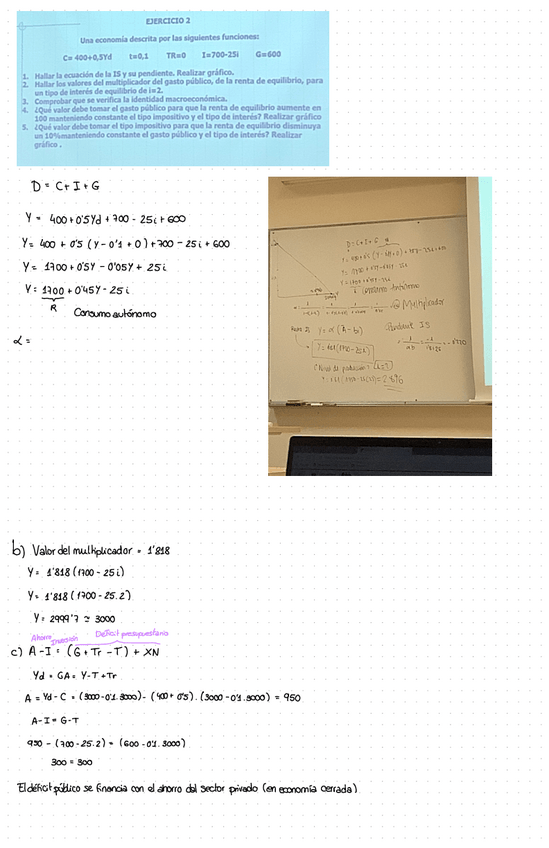 EJERCICIO 2
Una economía descrita por las siguientes funciones:
C= 400+0,5Yd t=0,1 TR=0 I=700-25i G=600
1. Hallar la ecuación de la IS y su pendiente. Realizar gráfico.
2. Hallar los valores del multiplicador del gasto público, de la renta de equilibrio, para
un tipo de interés de equilibrio de i=2.
3. Comprobar que se verifica la identidad macroeconómica.
4. ¿Qué valor debe tomar el gasto público para que la renta de equilibrio aumente en
100 manteniendo constante el tipo impositivo y el tipo de interés? Realizar gráfico
5. ¿Qué valor debe tomar el tipo impositivo para que la renta de equilibrio disminuya
un 10%manteniendo constante el gasto público y el tipo de interés? Realizar
gráfico .
D = C+ I + G
Y = 400 + 0'5Yd + 700 - 25i + 600
Y = 400 + 0'5 (Y - 0'1 + 0) + 700 - 25i + 600
Y = 1700 + 0'5Y - 0'05Y + 25i
Y = 1700 + 0'45Y - 25i
Consumo autónomo
α =
D = C+I+G
Multiplicador
Pendiente IS
b) Valor del multiplicador = 1'818
Y = 1'818 (1700 - 25i)
Y = 1'818 (1700 - 25.2)
Y = 2999'7 ≃ 3000
Ahorro Inversión Déficit presupuestario
c) A - I = (G + Tr - T) + XN
Yd = GA = Y - T + Tr
A = Yd - C = (3000 - 0'1.3000) - (400 + 0'5) . (3000 - 0'1.3000) = 950
A - I = G - T
950 - (700 - 25.2) = (600 - 0'1.3000)
300 = 300
El déficit público se financia con el ahorro del sector privado (en economía cerrada)